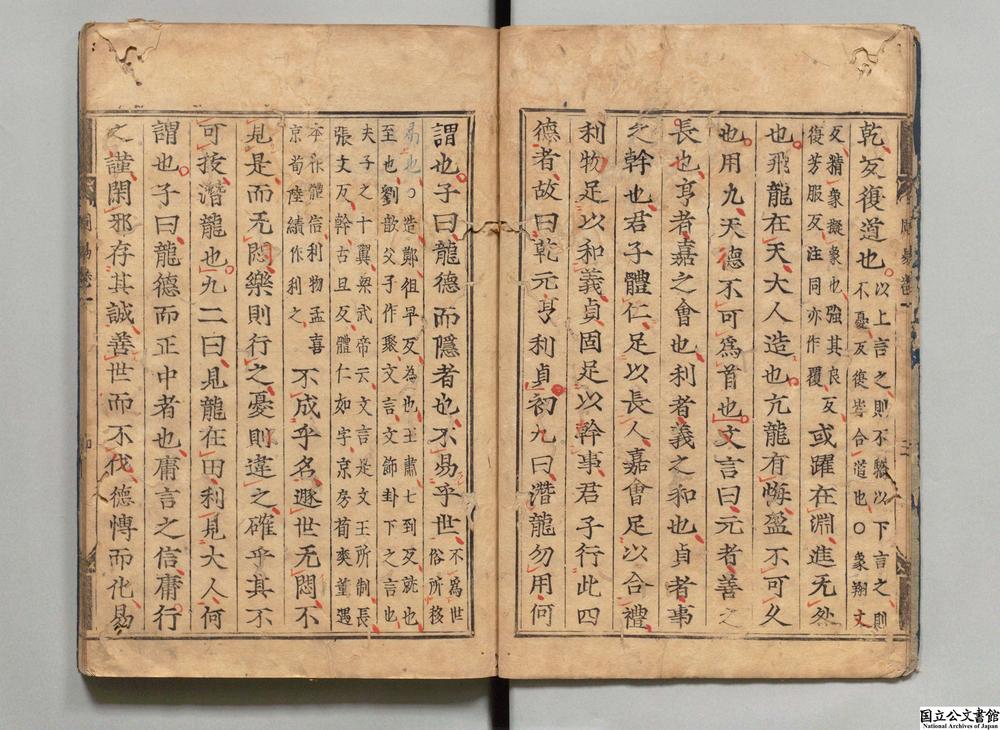 乾反復道也
以上言之則不驕以下言之則
不憂反復皆合道也〇象翔丈
反猪象擬象也強其良反
復芳服反注同亦作覆
或躍在淵進无咎
也飛龍在天大人造也亢龍有悔盈不可久
也用九天德不可爲首也文言曰元者善之
長也亨者嘉之會也利者義之和也貞者事
之幹也君子體仁足以長人嘉會足以合禮
利物足以和義貞固足以幹事君子行此四
德者故曰乾元亨利貞初九曰潛龍勿用何
謂也子曰龍德而隱者也不易乎世
不爲世
俗所移
易也〇造鄭徂早反為也王肅七到反就也
至也劉歆父子作聚文言文飾卦下之言也
夫子之十翼梁武帝云文言是文王所制長
張丈反幹古旦反體仁如字京房荀爽董遇
本作體信利物孟喜
京荀陸績作利之
不成乎名遯世无悶不
見是而无悶樂則行之憂則違之確乎其不
可拔潛龍也九二曰見龍在田利見大人何
謂也子曰龍德而正中者也庸言之信庸行
之謹閑邪存其誠善世而不伐德博而化易
国立公文書館
National Archives of Japan